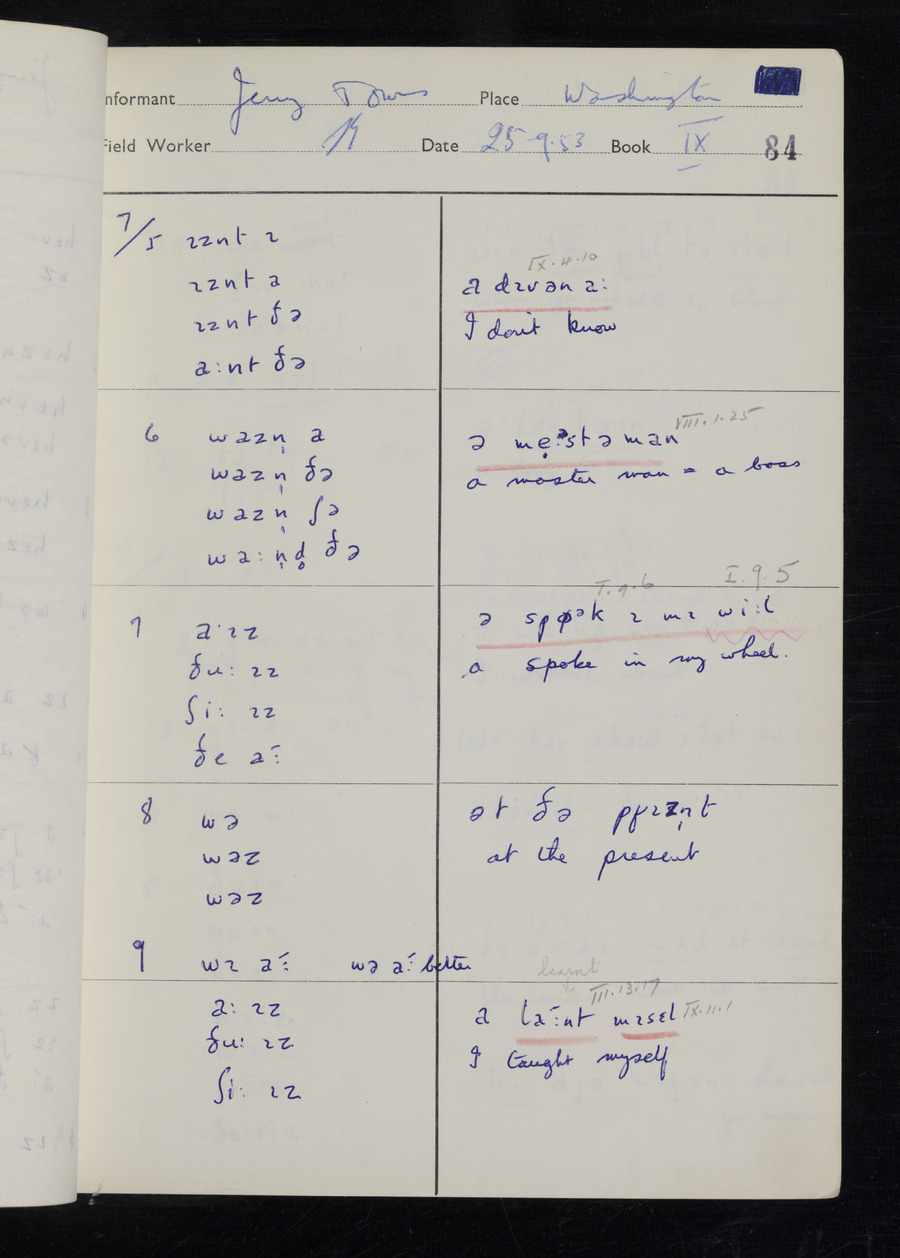 Informant Jerry Towers Place Washington
Field Worker Date 25-9-53 Book IX 84
7/5 ɪznt ɪ
ɪznt a
ɪznt ðə
a:nt ðə
IX.4.10
a dɪvən a:
I don't know
6 wazn̩ a
wazn̩ ðə
wazn̩ ʃə
wa:n̩d̥ ðə
VIII.1.25
ə mẹ:ᵊstəman
a master man = a boss
7 a·ɪz
ðu: ɪz
ʃi: ɪz
ðe a:
I.9.6 I.9.5
ə spøᵊk ɪ mɪ wi:l
a spoke in my wheel.
8 wə
wəz
wəz
ət ðə pɾɪzn̩t
at the present
9 wɪ a: wə a: better
a: ɪz
ðu: ɪz
ʃi: ɪz
learnt
III.13.17
a la:nt mɪsel IX.11.1
I taught myself